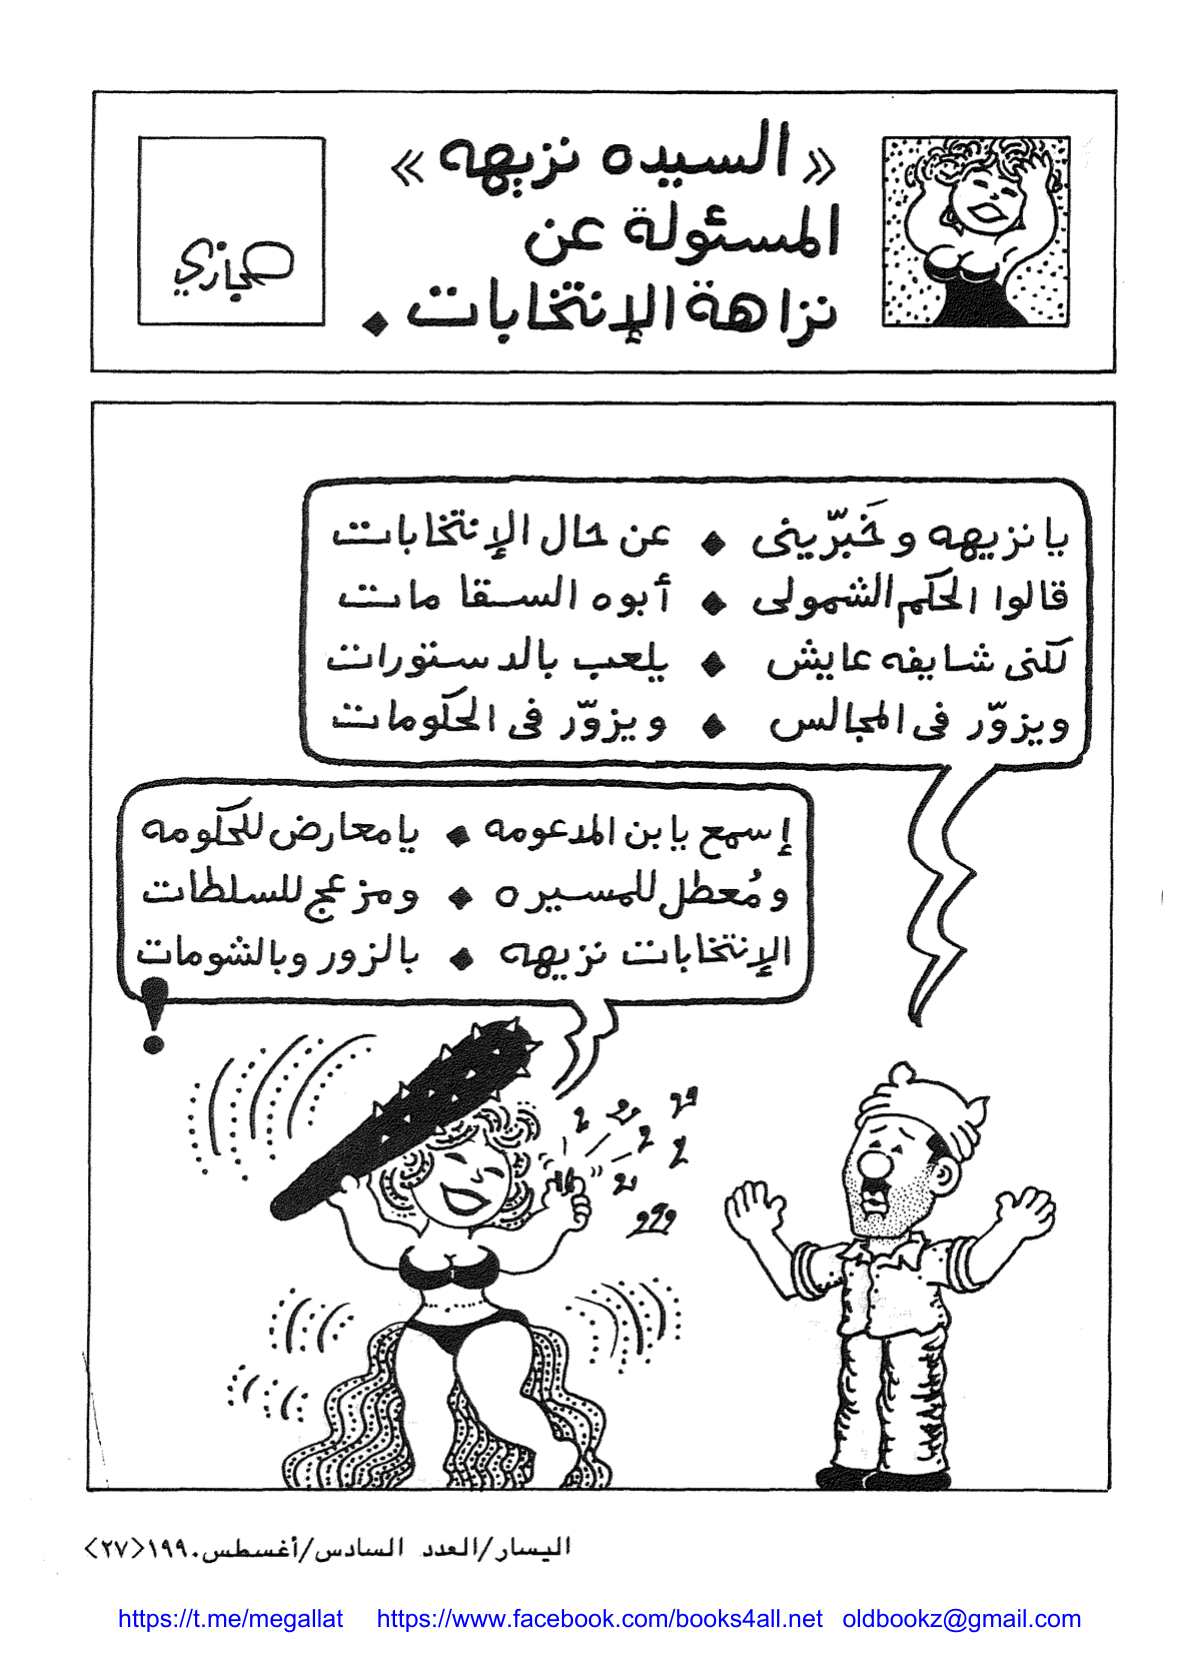 «السيده نزيهه»
المسئولة عن
نزاهة الإنتخابات ◆
حجازي
يا نزيهه وخَبّريني ◆ عن حال الإنتخابات
قالوا الحكم الشمولى ◆ أبوه السقا مات
لكنى شايفه عايش ◆ يلعب بالدستورات
ويزوّر فى المجالس ◆ ويزوّر فى الحكومات
إسمع يابن المدعومه ◆ يا معارض للحكومه
ومُعطل للمسيره ◆ ومزعج للسلطات
الإنتخابات نزيهه ◆ بالزور وبالشومات
!
اليسار/العدد السادس/أغسطس ١٩٩٠<٢٧>
https://t.me/megallat https://www.facebook.com/books4all.net oldbookz@gmail.com